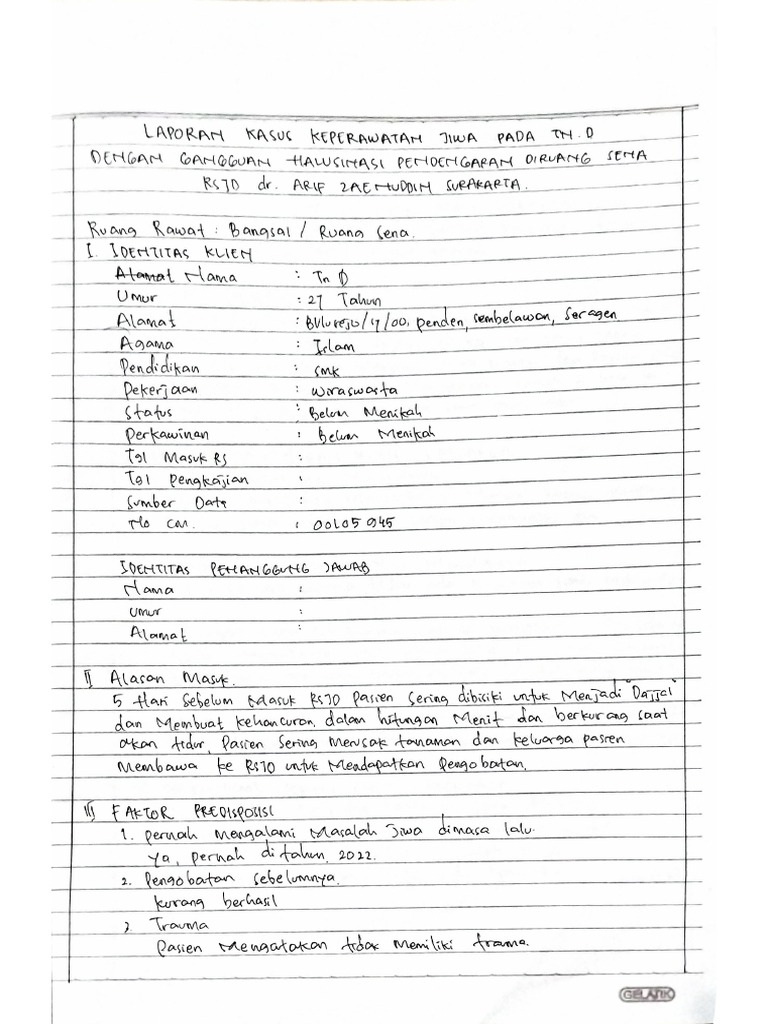 LAPORAN KASUS KEPERAWATAN JIWA PADA TN.D
DENGAN GANGGUAN HALUSINASI PENDENGARAN DIRUANG SENA
RSJD dr. ARIF ZAENUDDIN SURAKARTA.
Ruang Rawat : Bangsal / Ruang Sena.
I. IDENTITAS KLIEN
Alamat Nama : Tn D
Umur : 27 Tahun
Alamat : Bulurejo/17/00, penden, sembelawan, Seragen
Agama : Islam
Pendidikan : SMK
Pekerjaan : wiraswasta
Status : Belum Menikah
Perkawinan : Belum Menikah
Tgl Masuk RS :
Tgl pengkajian :
Sumber Data :
No CM. : 00105945
IDENTITAS PENANGGUNG JAWAB
Nama :
Umur :
Alamat :
II Alasan Masuk.
5 Hari Sebelum Masuk RSJD Pasien Sering dibisiki untuk Menjadi "Dajjal"
dan Membuat kehancuran, dalam hitungan Menit dan berkurang saat
akan tidur, Pasien Sering Merusak tanaman dan keluarga pasien
Membawa ke RSJD untuk Mendapatkan Pengobatan.
III FAKTOR PREDISPOSISI
1. pernah Mengalami Masalah Jiwa dimasa lalu.
Ya, pernah di tahun 2022.
2. Pengobatan sebelumnya.
kurang berhasil
3 Trauma
Pasien Mengatakan tidak Memiliki trama.
GELATIK